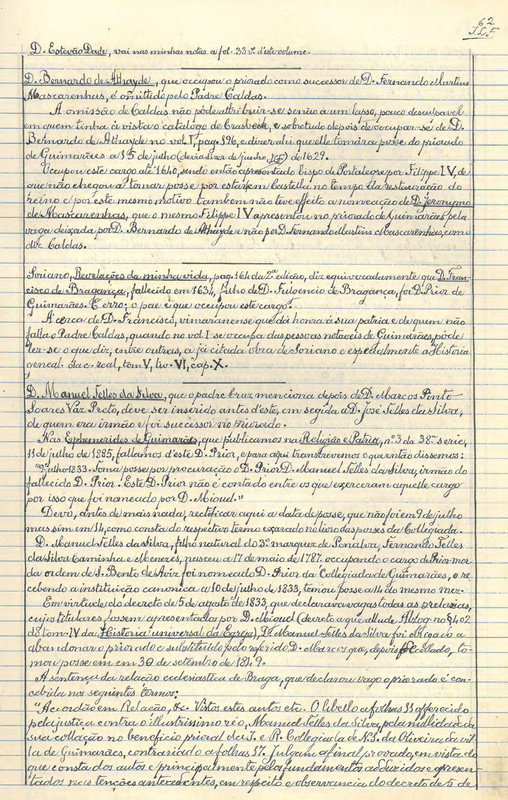 62
J.L.F.
D. Estevão Dade, vai nas minhas notas a fol. 33 v. d'este volume.
D. Bernardo de Athayde, que occupou o priorado como successor de D. Fernando Martins
Mascarenhas, é omittido pelo Padre Caldas.
A omissão de Caldas não póde attribuir-se senão a um lapso, pouco desculpavel
em quem tinha á vista o catalogo de Craesbeeck, e sobretudo depois de occupar-se de D.
Bernardo de Athayde no vol. I, pag. 396, e dizer ahi que elle tomára posse do priorado
de Guimarães a 15 de julho (deixa ler-se de junho, ) de 1629.
Occupou este cargo até 1640, sendo então apresentado bispo de Portalegre por Filippe IV, de
que não chegou a tomar posse por estar em Castella no tempo da restauração do
reino e por este mesmo motivo tambem não teve effeito a nomeação de D. Jeronymo
de Mascarenhas, que o mesmo Filippe IV apresentou no priorado de Guimarães pela
vaga deixada por D. Bernardo de Athayde e não por D. Fernando Martins Mascarenhas, como
diz Caldas.
Soriano, Revelações da minha vida, pag. 164 da 2ª edição, diz equivocadamente que D. Fran-
cisco de Bragança, fallecido em 1634, filho de D. Fulgencio de Bragança, foi D. Prior de
Guimarães. É erro; o pae é que occupou este cargo.
Á cerca de D. Francisco, vimaranense que dá honra á sua patria e de quem não
falla o Padre Caldas, quando no vol. I se occupa das pessoas notaveis de Guimarães, póde
ler-se o que diz, entre outras, a já citada obra de Soriano e especialmente a Historia
geneal. da c. real, tom. V, liv. VI, cap. X.
D. Manuel Telles da Silva, que o padre Cruz menciona depois de D. Marcos Pinto
Soares Vaz Preto, deve ser inserido antes d'este, em segida a D. José Telles da Silva,
de quem era irmão e foi successor no priorado.
Nas Ephemerides de Guimarães, que publicamos na Religião e Patria, nº 3 da 38ª serie,
11 de julho de 1885, fallamos d'este D. Prior, e para aqui transcrevemos o que então dissemos:
"9 julho 1833. Toma posse por procuração o D. Prior D. Manuel Telles da Silva, irmão do
fallecido D. Prior. Este D. Prior não é contado entre os que exerceram aquelle cargo
por isso que foi nomeado por D. Miguel."
Devo, antes de mais nada, rectificar aqui a data de posse, que não foi em 9 de julho
mas sim em 14, como consta do respectivo termo exarado no livro das posses da Collegiada.
D. Manuel Telles da Silva, filho natural do 3º marquez de Penalva, Fernando Telles
da Silva Caminha e Menezes, nasceu a 17 de maio de 1787. occupando o cargo de Prior-mor
da ordem de S. Bento de Aviz foi nomeado D. Prior da Collegiada de Guimarães, e re-
cebendo a instituição canonica a 10 de julho de 1833, tomou posse a 14 do mesmo mez.
Em virtude do decreto de 5 de agosto de 1833, que declarava vagas todas as prelasias,
cujos titulares fossem apresentados por D. Miguel (Decreto a que allude Alzog no § 402
do tom. IV da Historia universal da Egreja), D. Manuel Telles da Silva foi obrigado a
abandonar o priorado e substituido pelo referido D. Marcos que, depois collado, to-
mou posse em em 30 de setembro de 1849.
A sentença da relação ecclesiastica de Braga, que declarou vago o priorado é con-
cebida nos seguintes termos:
"Accordão em Relação, &c. Vistos estes autos etc. O libello a folhas 11 offerecido
pela justiça contra o illustrissimo réo, Manuel Telles da Silva, pela nullidade da
sua collação no beneficio prioral da I. e R. Collegiada de N. S. da Oliveira da vil-
la de Guimarães, contrariado a folhas 37. Julgam afinal provado, em vista do
que consta dos autos e principalmente pelos fundamentos adduzidos e apresen-
tados nas tenções antecedentes, em respeito e observancia do decreto de 5 de